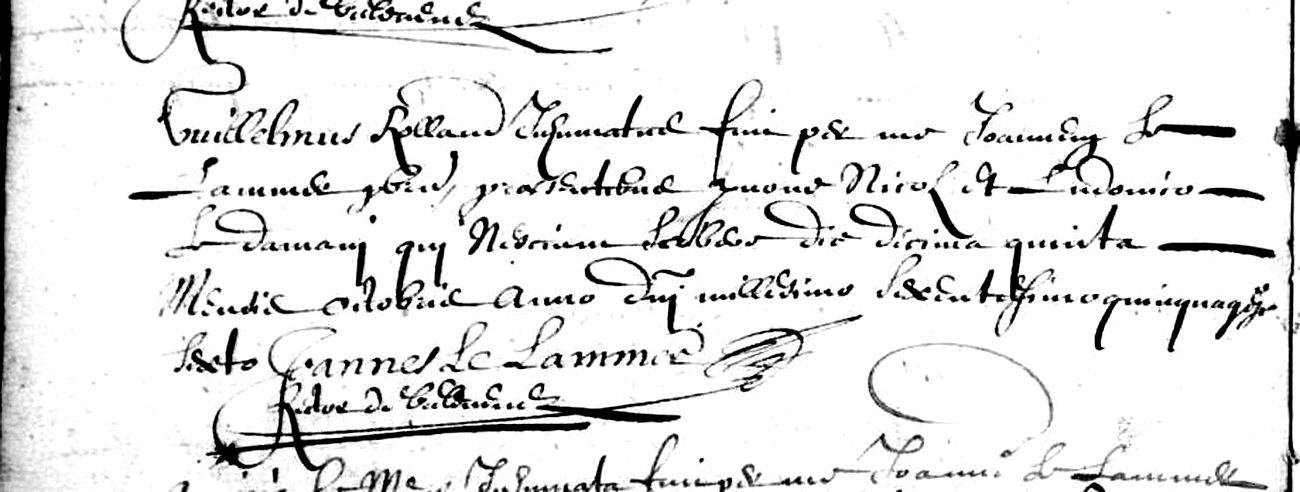 Rector de
Guillelmus Rolland Inhumatus fuit per me Joannem Le
Lammer pbrum, praesentibus yvone Nicol et Ludovico
Le damany qui Nesciunt scribere die decima quinta
Mensis octobris Anno dni millesimo sexentesimo quinquages
sexto Joannes Le Lammer
Rector de
Le Mer Inhumata fuit per me Joannem Le Lammer